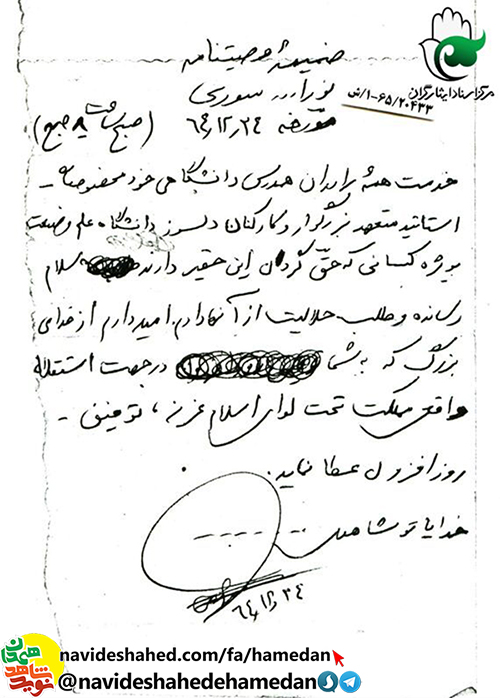 ضمیمهٔ وصیتنامه
نورالله سوری
مورخه ۶۴٫۱۲٫۲۴
(صبح ساعت ۸ صبح)
مرکز اسناد ایثارگران
۱-۶۵/۲۰۴۳۳/ش
خدمت همهٔ برادران همدرس دانشگاهی خود مخصوصاً -
اساتید متعهد بزرگوار و کارکنان دلسوز دانشگاه علم و صنعت
بویژه کسانی که حقی گردن این حقیر دارند سلام
رسانده و طلب حلالیت از آنها دارم. امیدوارم از خدای
بزرگ که به شما در جهت استقلال
واقعی مملکت تحت لوای اسلام عزیز، توفیق -
روزافزون عطا نماید.
خدایا تو شاهدی
۶۴٫۱۲٫۲۴
نوید شاهد همدان
navideshahed.com/fa/hamedan
@navideshahedehamedan